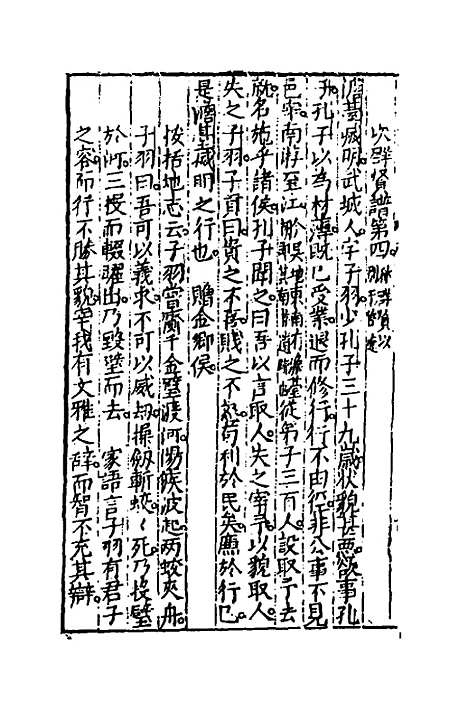 次群賢譜第四
澹臺滅明武城人字子羽少孔子三十九歲狀貌甚惡欲事孔
子孔子以為材薄既已受業退而修行行不由徑非公事不見
邑宰南游至江從弟子三百人設取予去
就名施乎諸侯孔子聞之曰吾以言取人失之宰予以貌取人
失之子羽子貢曰貴之不喜賤之不怒苟利於民矣廉於行己
是澹臺滅明之行也　贈金鄉侯
按括地志云子羽嘗齎千金璧渡河陽侯波起两蛟夾舟
子羽曰吾可以義求不可以威劫操劔斬蛟〻死乃投璧
於河三投而輒躍出乃毀璧而去　家語言子羽有君子
之容而行不勝其貌宰我有文雅之辭而智不充其辯